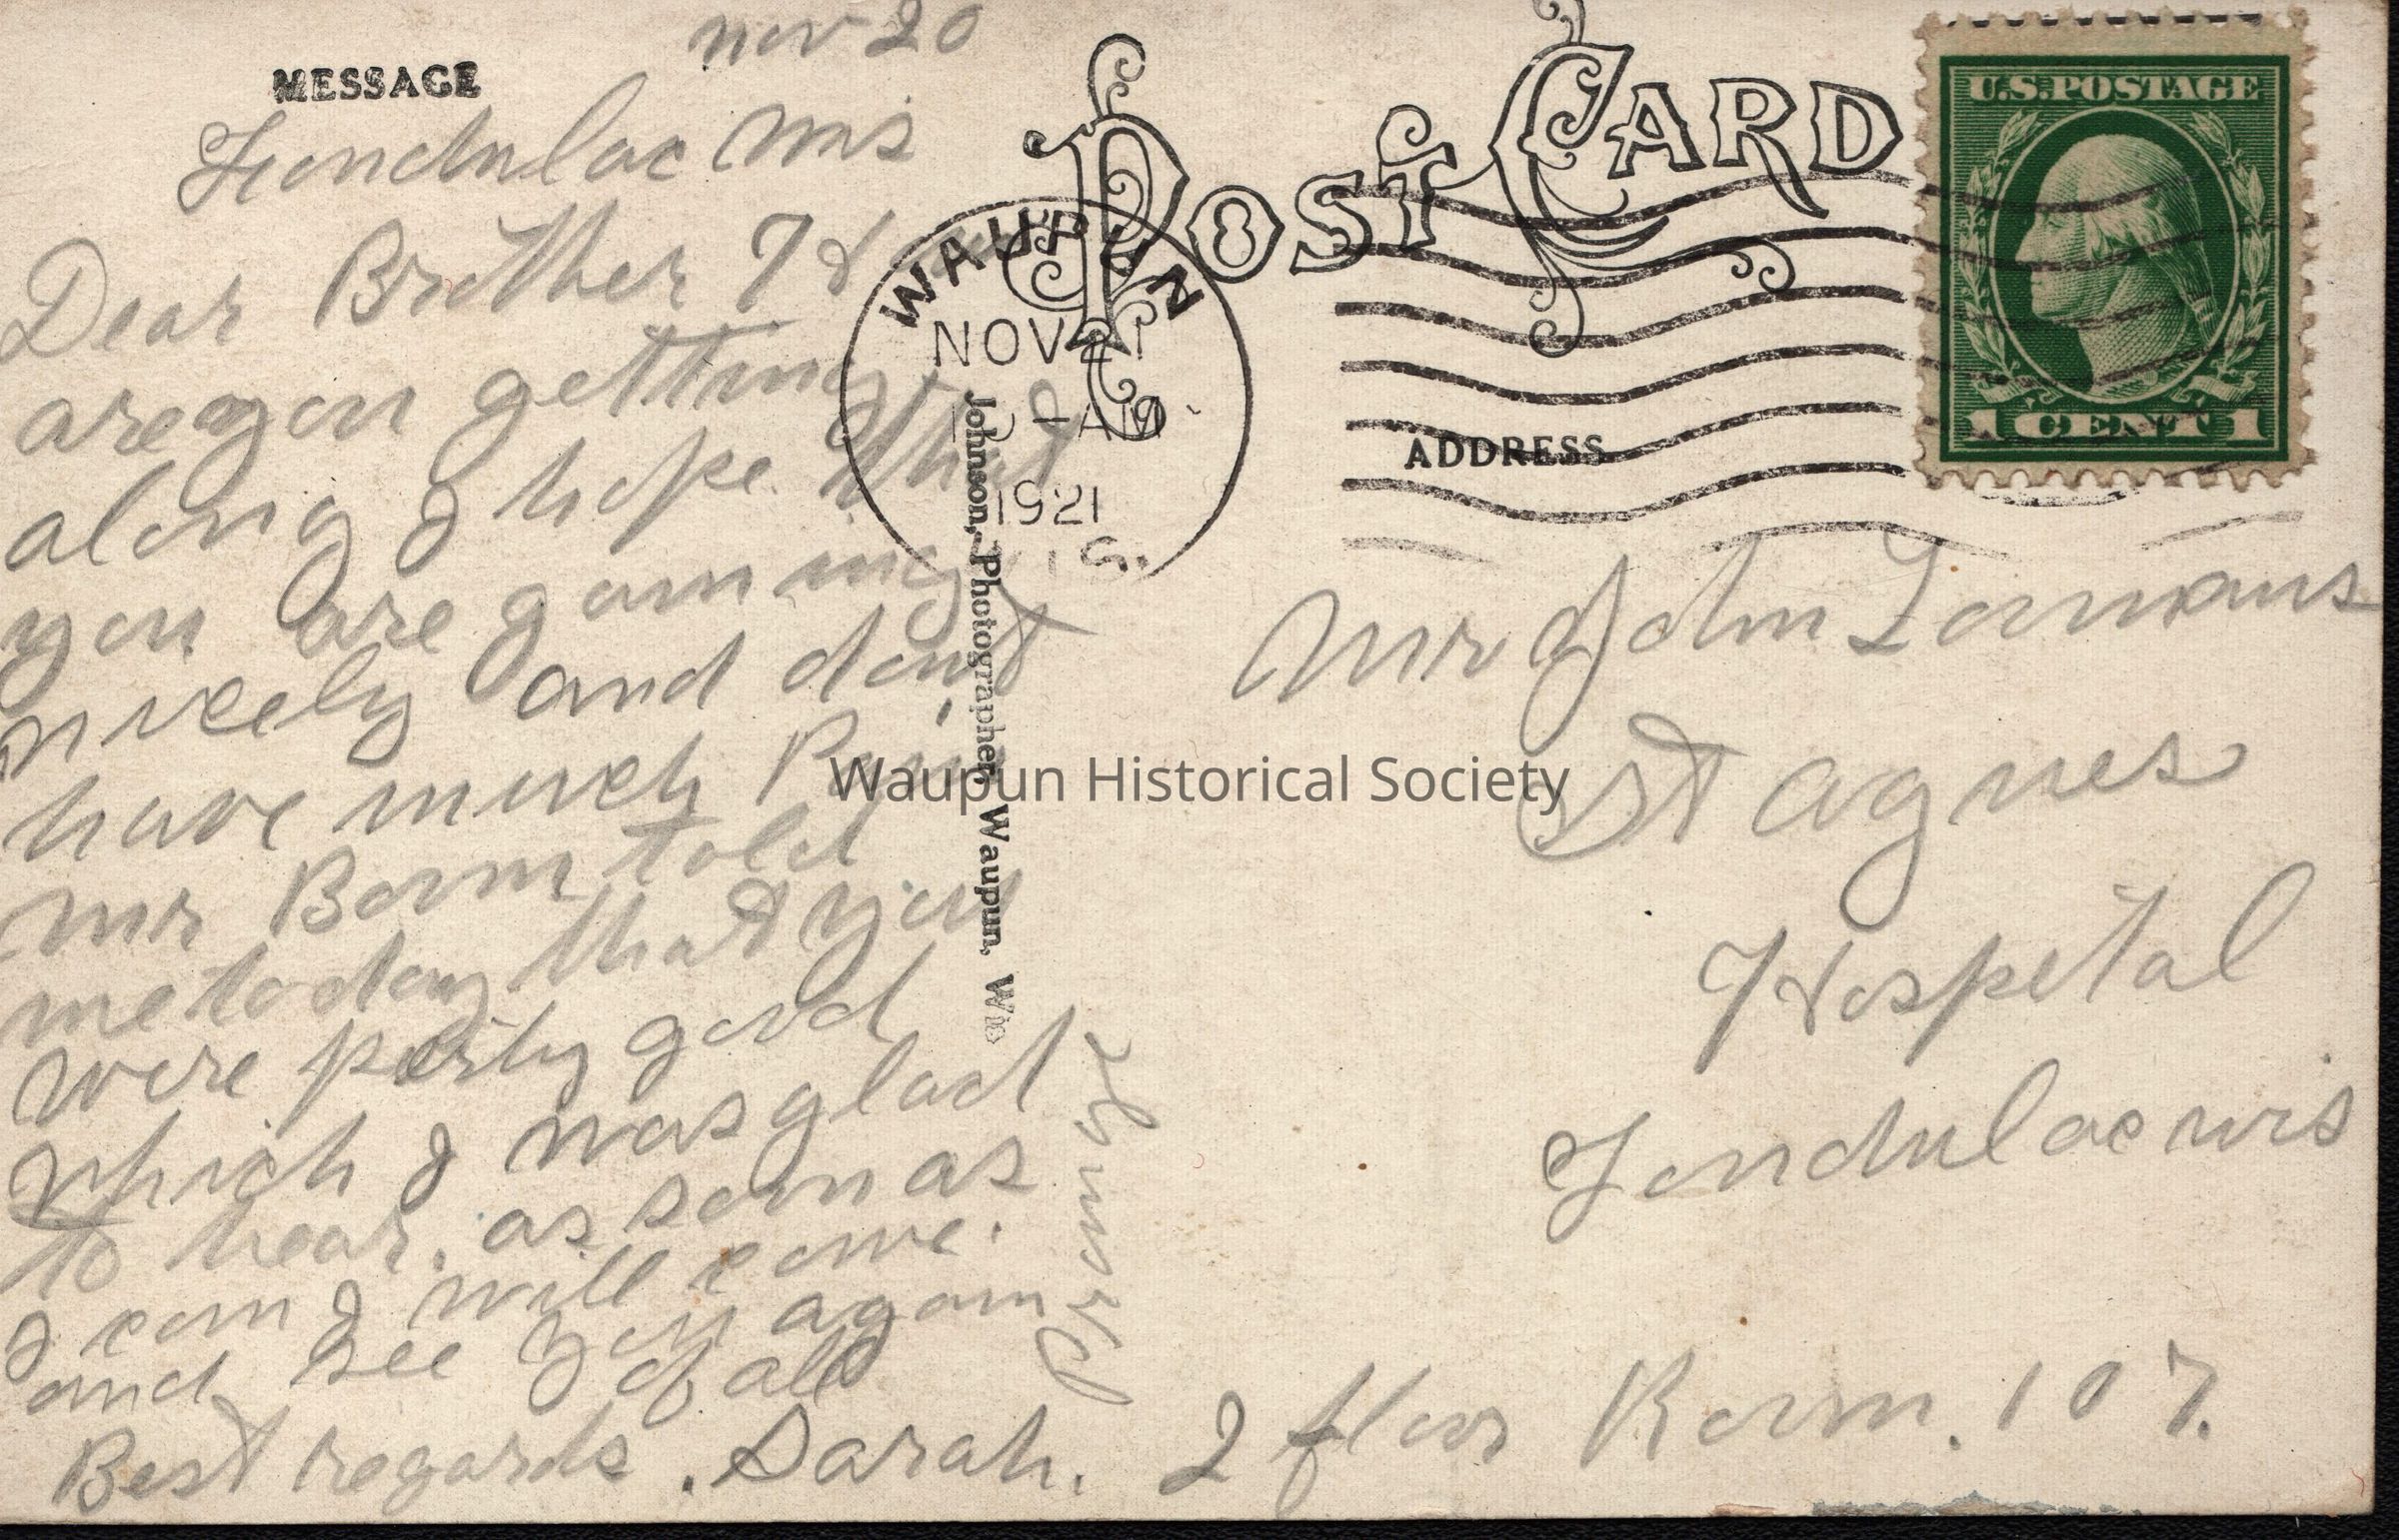 nov 20
MESSAGE
Fondulac Wis
Dear Brother
are you getting
along I hope that
you are gaining
niceely and dont
have much Pain
mr Bom told
me today that you
were perty good
which I was glad
to hear. as soon as
I can I will come.
and see you again
of all
Best regards. Sarah.
POST CARD
WAUPUN
NOV 21
AM
1921
WIS.
Johnson, Photographer, Waupun, Wis
U.S. POSTAGE
1 CENT 1
ADDRESS
Mr John Loomans
St Agnes
Hospetal
Fondulac wis
2 floor Room. 107.
Waupun Historical Society